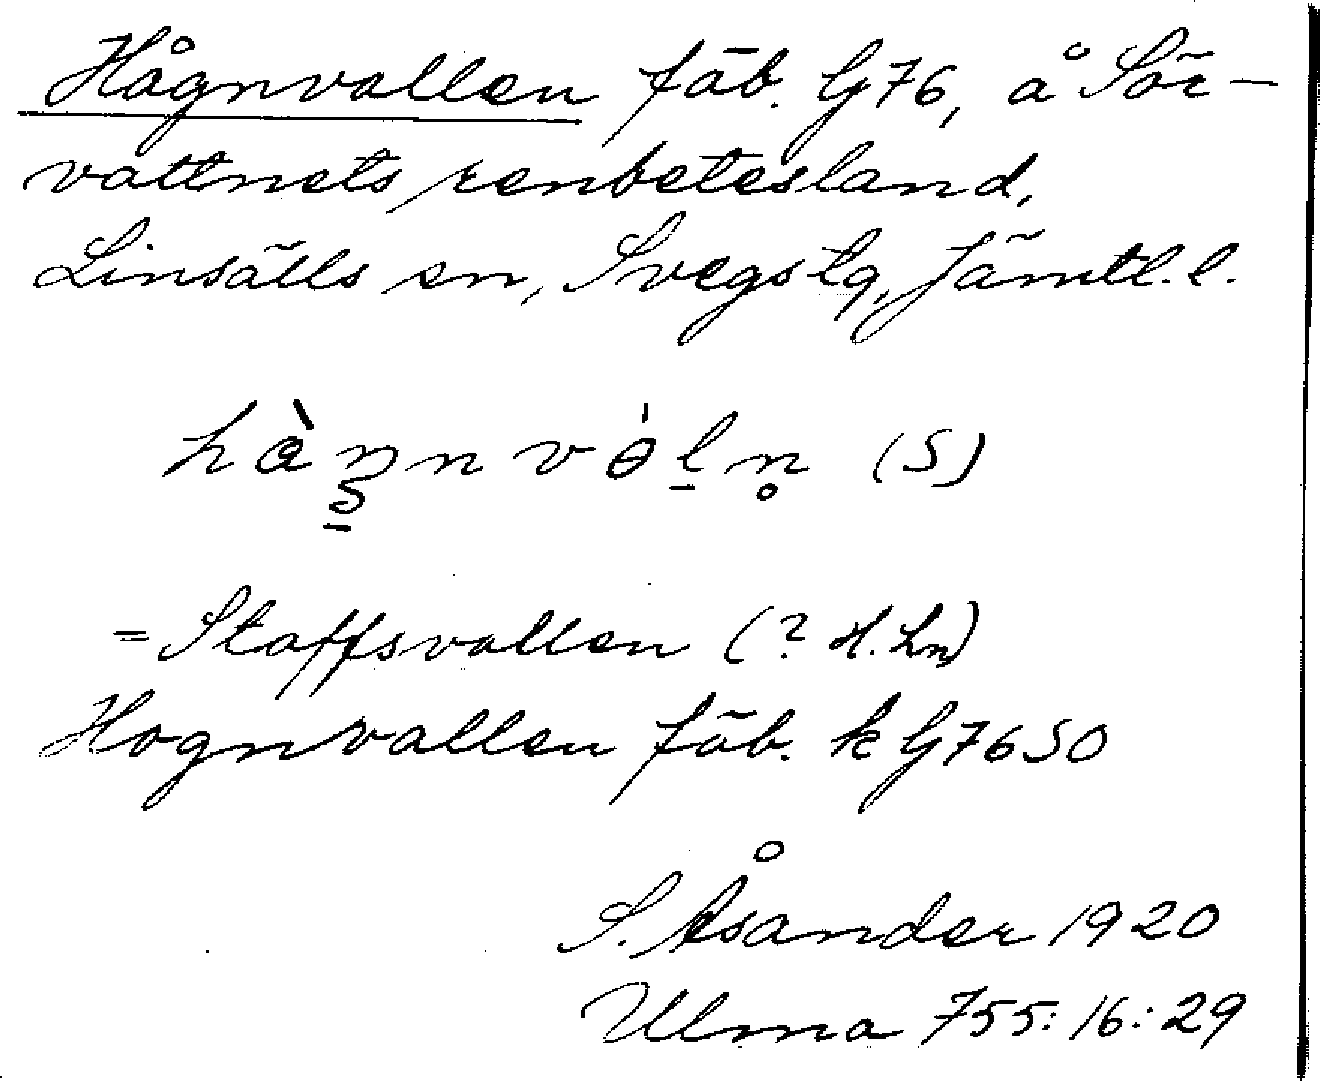 Hågnvallen fäb. G76, å Sör-
vattnets renbetesland,
Linsälls sn, Svegs tg, Jämtl. l.
(S)
= Staffsvallen (? H. Ln)
Hognvallen fäb. k G7650
S. Åsander 1920
Ulma 755:16:29